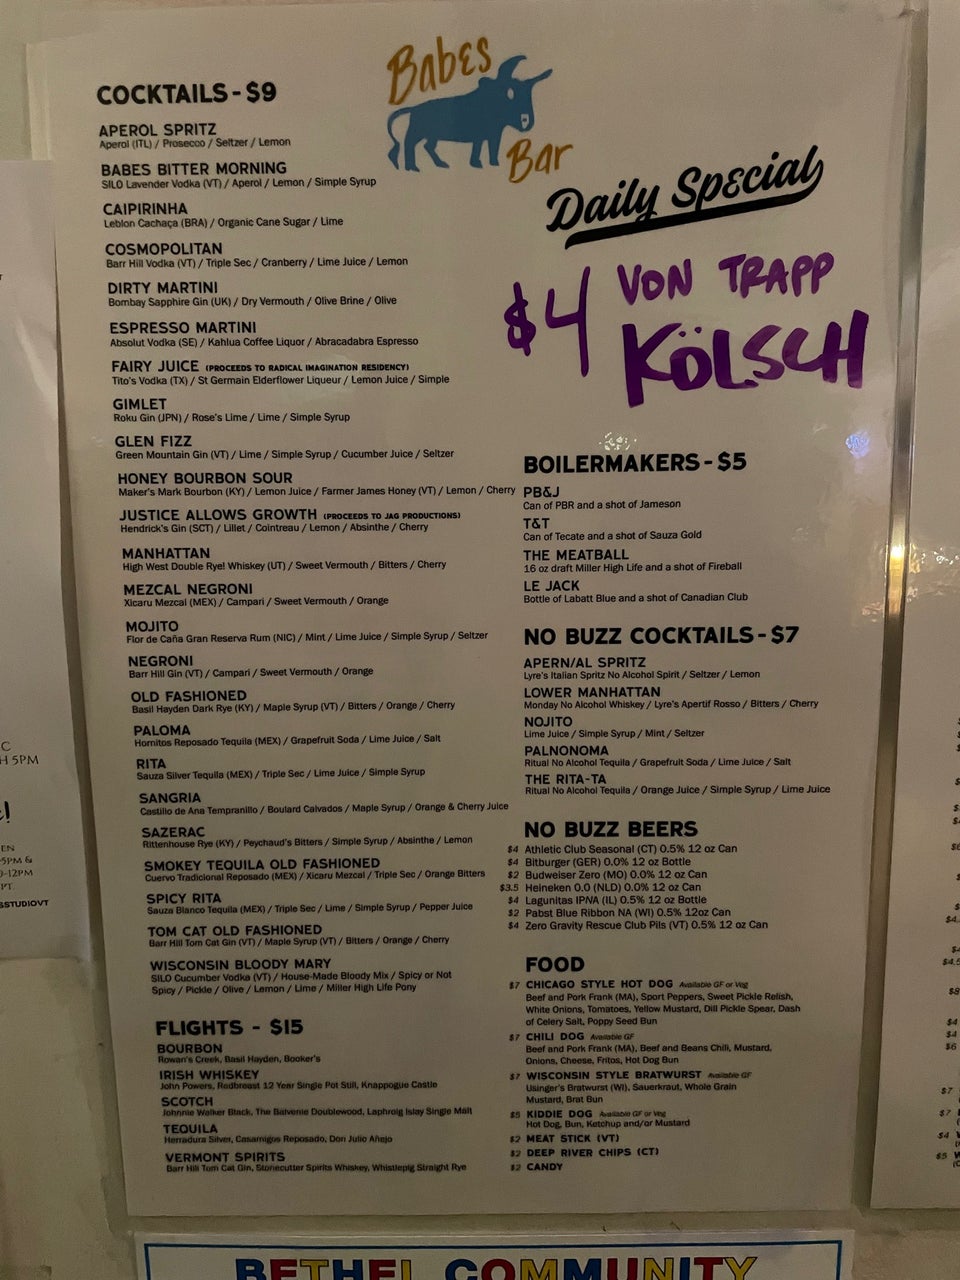 Babes
Bar
COCKTAILS - $9
APEROL SPRITZ
Aperol (ITL) / Prosecco / Seltzer / Lemon
BABES BITTER MORNING
SILO Lavender Vodka (VT) / Aperol / Lemon / Simple Syrup
CAIPIRINHA
Leblon Cachaça (BRA) / Organic Cane Sugar / Lime
COSMOPOLITAN
Barr Hill Vodka (VT) / Triple Sec / Cranberry / Lime Juice / Lemon
DIRTY MARTINI
Bombay Sapphire Gin (UK) / Dry Vermouth / Olive Brine / Olive
ESPRESSO MARTINI
Absolut Vodka (SE) / Kahlua Coffee Liquor / Abracadabra Espresso
FAIRY JUICE (PROCEEDS TO RADICAL IMAGINATION RESIDENCY)
Tito's Vodka (TX) / St Germain Elderflower Liqueur / Lemon Juice / Simple
GIMLET
Roku Gin (JPN) / Rose's Lime / Lime / Simple Syrup
GLEN FIZZ
Green Mountain Gin (VT) / Lime / Simple Syrup / Cucumber Juice / Seltzer
HONEY BOURBON SOUR
Maker's Mark Bourbon (KY) / Lemon Juice / Farmer James Honey (VT) / Lemon / Cherry
JUSTICE ALLOWS GROWTH (PROCEEDS TO JAG PRODUCTIONS)
Hendrick's Gin (SCT) / Lillet / Cointreau / Lemon / Absinthe / Cherry
MANHATTAN
High West Double Rye! Whiskey (UT) / Sweet Vermouth / Bitters / Cherry
MEZCAL NEGRONI
Xicaru Mezcal (MEX) / Campari / Sweet Vermouth / Orange
MOJITO
Flor de Caña Gran Reserva Rum (NIC) / Mint / Lime Juice / Simple Syrup / Seltzer
NEGRONI
Barr Hill Gin (VT) / Campari / Sweet Vermouth / Orange
OLD FASHIONED
Basil Hayden Dark Rye (KY) / Maple Syrup (VT) / Bitters / Orange / Cherry
PALOMA
Hornitos Reposado Tequila (MEX) / Grapefruit Soda / Lime Juice / Salt
RITA
Sauza Silver Tequila (MEX) / Triple Sec / Lime Juice / Simple Syrup
SANGRIA
Castillo de Ana Tempranillo / Boulard Calvados / Maple Syrup / Orange & Cherry Juice
SAZERAC
Rittenhouse Rye (KY) / Peychaud's Bitters / Simple Syrup / Absinthe / Lemon
SMOKEY TEQUILA OLD FASHIONED
Cuervo Tradicional Reposado (MEX) / Xicaru Mezcal / Triple Sec / Orange Bitters
SPICY RITA
Sauza Blanco Tequila (MEX) / Triple Sec / Lime / Simple Syrup / Pepper Juice
TOM CAT OLD FASHIONED
Barr Hill Tom Cat Gin (VT) / Maple Syrup (VT) / Bitters / Orange / Cherry
WISCONSIN BLOODY MARY
SILO Cucumber Vodka (VT) / House-Made Bloody Mix / Spicy or Not
Spicy / Pickle / Olive / Lemon / Lime / Miller High Life Pony
FLIGHTS - $15
BOURBON
Rowan's Creek, Basil Hayden, Booker's
IRISH WHISKEY
John Powers, Redbreast 12 Year Single Pot Still, Knappogue Castle
SCOTCH
Johnnie Walker Black, The Balvenie Doublewood, Laphroig Islay Single Malt
TEQUILA
Herradura Silver, Casamigos Reposado, Don Julio Añejo
VERMONT SPIRITS
Barr Hill Tom Cat Gin, Stonecutter Spirits Whiskey, Whistlepig Straight Rye
Daily Special
$4 VON TRAPP
KÖLSCH
BOILERMAKERS - $5
PB&J
Can of PBR and a shot of Jameson
T&T
Can of Tecate and a shot of Sauza Gold
THE MEATBALL
16 oz draft Miller High Life and a shot of Fireball
LE JACK
Bottle of Labatt Blue and a shot of Canadian Club
NO BUZZ COCKTAILS - $7
APERN/AL SPRITZ
Lyre's Italian Spritz No Alcohol Spirit / Seltzer / Lemon
LOWER MANHATTAN
Monday No Alcohol Whiskey / Lyre's Apertif Rosso / Bitters / Cherry
NOJITO
Lime Juice / Simple Syrup / Mint / Seltzer
PALNONOMA
Ritual No Alcohol Tequila / Grapefruit Soda / Lime Juice / Salt
THE RITA-TA
Ritual No Alcohol Tequila / Orange Juice / Simple Syrup / Lime
NO BUZZ BEERS
$4 Athletic Club Seasonal (CT) 0.5% 12 oz Can
$4 Bitburger (GER) 0.0% 12 oz Bottle
$2 Budweiser Zero (MO) 0.0% 12 oz Can
$3.5 Heineken 0.0 (NLD) 0.0% 12 oz Can
$4 Lagunitas IPNA (IL) 0.5% 12 oz Bottle
$2 Pabst Blue Ribbon NA (WI) 0.5% 12oz Can
$4 Zero Gravity Rescue Club Pils (VT) 0.5% 12 oz Can
FOOD
$7 CHICAGO STYLE HOT DOG Available GF or Veg
Beef and Pork Frank (MA), Sport Peppers, Sweet Pickle Relish,
White Onions, Tomatoes, Yellow Mustard, Dill Pickle Spear, Dash
of Celery Salt, Poppy Seed Bun
$7 CHILI DOG Available GF
Beef and Pork Frank (MA), Beef and Beans Chili, Mustard,
Onions, Cheese, Fritos, Hot Dog Bun
$7 WISCONSIN STYLE BRATWURST Available GF
Usinger's Bratwurst (WI), Sauerkraut, Whole Grain
Mustard, Brat Bun
$5 KIDDIE DOG Available GF or Veg
Hot Dog, Bun, Ketchup and/or Mustard
$2 MEAT STICK (VT)
$2 DEEP RIVER CHIPS (CT)
$2 CANDY
BETHEL COMMUNITY
H 5PM
-5PM &
-12PM
SSTUDIOVT